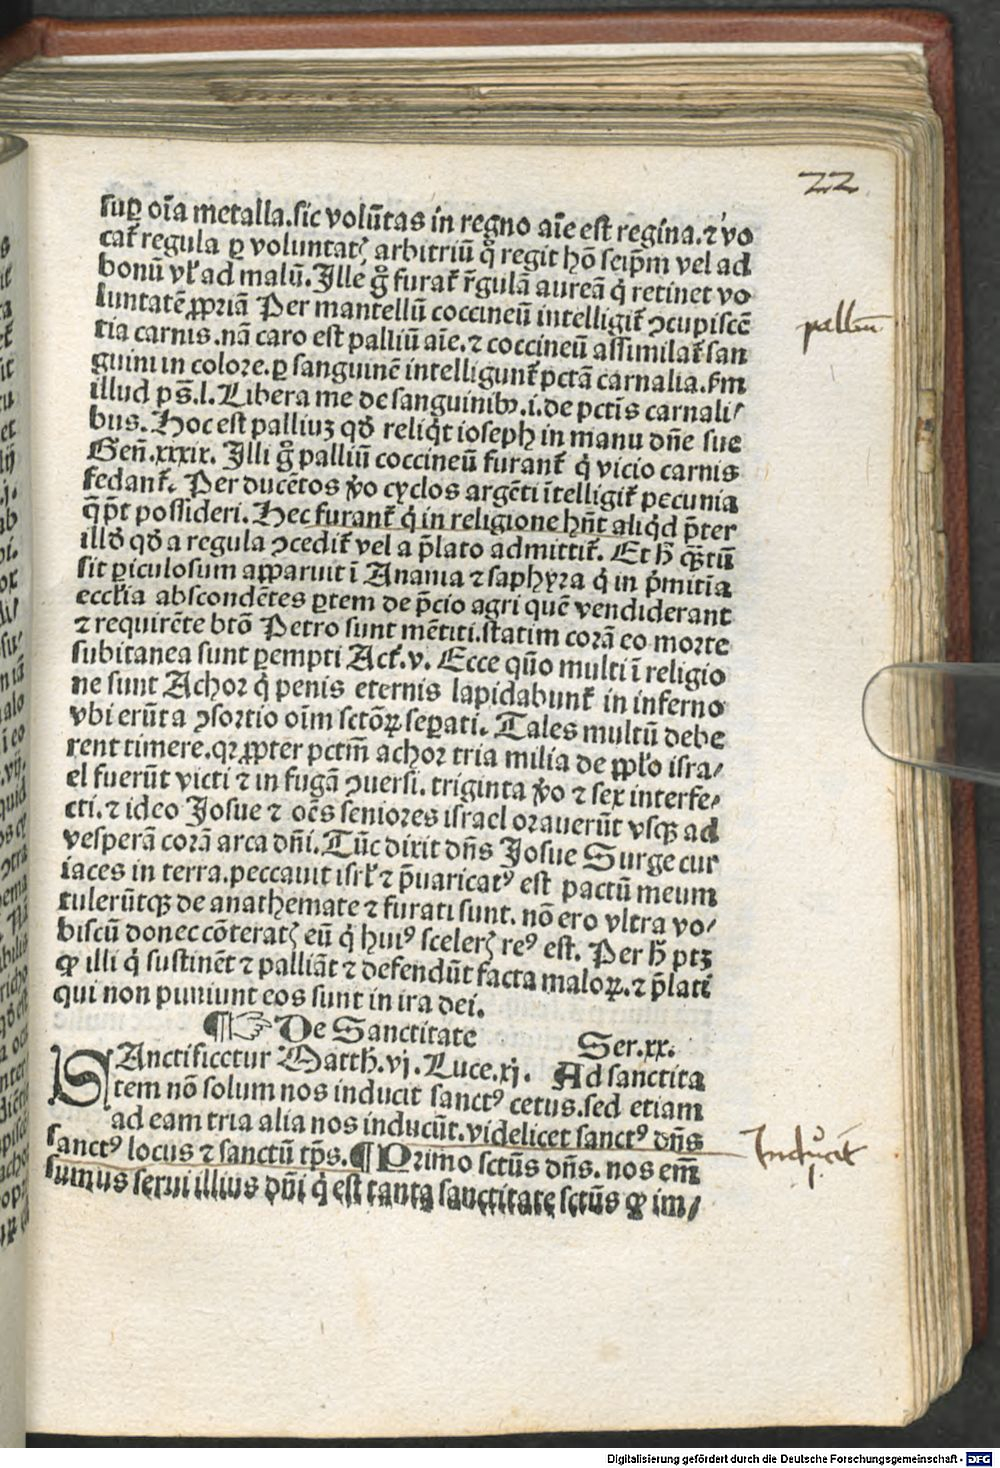 22
suꝑ oı̄a metalla.sic volūtas in regno aı̄e est regina.⁊ vo
cat᷑ regula ꝑ voluntatꝭ arbitriū qͦ regit hō seip̄m vel ad
bonū vl̓ ad malū. Ille gͦ furat᷑ r̄gulā aureā q̇ retinet vo
luntatē ꝓpriā Per mantellū coccineū intelligit᷑ ꝯcupiscē
tia carnis.nā caro est palliū aı̄e.⁊ coccineū assimilat᷑ san
guini in colore.ꝑ sanguinē intelligunt᷑ pctā carnalia.ẜm
illud ps̄.l. Libera me de sanguinibꝰ.i.de pctı̄s carnali/
bus. Hoc est palliuꝫ qd̓ reliq̇t ioseph in manu dn̄e sue
Gen̄.xxxix. Illi gͦ palliū coccineū furant᷑ q̇ vicio carnis
fedant᷑. Per ducētos v̓o cyclos argēti ı̄telligit᷑ pecunia
q̄ pt̄ possideri. Hec furant᷑ q̇ in religione hn̄t aliq̇d p̄ter
illd̓ qd̓ a regula ꝯcedit᷑ vel a p̄lato admittit᷑. Et h̄ qꝫtū
sit ꝑiculosum apparuit ı̄ Anania ⁊ saphyra q̇ in p̓mitı̄a
eccl̓ia abscondētes ꝑtem de p̄cio agri quē vendiderant
⁊ requirēte btō Petro sunt mētiti.statim corā eo morte
subitanea sunt ꝑempti Act᷑.v. Ecce quō multi ı̄ religio
ne sunt Achor q̇ penis eternis lapidabunt᷑ in inferno
vbi erūt a ꝯsortio oı̄m sctōꝝ seꝑati. Tales multū debe
rent timere.qꝛ ꝓpter pctm̄ achor tria milia de ppl̓o isra/
el fuerūt victi ⁊ in fugā ꝯuersi. triginta v̓o ⁊ sex interfe/
cti.⁊ ideo Josue ⁊ oēs seniores israel orauerūt vsqꝫ ad
vesperā corā arca dn̄i. Tūc dixit dn̄s Josue Surge cur
iaces in terra.peccauit isrl̓ ⁊ p̄uaricatꝰ est pactū meum
tulerūtqꝫ de anathemate ⁊ furati sunt. nō ero vltra vo/
biscū donec cōteratꝭ eū q̇ huiꝰ scelerꝭ reꝰ est. Per h̄ ptꝫ
ꝙ illi q̇ sustinēt ⁊ palliāt ⁊ defendūt facta maloꝝ.⁊ p̄lati
qui non puniunt eos sunt in ira dei.
¶☞ De Sanctitate Ser.xx.
SAnctificetur Matth̄.vj. Luce.xj. Ad sanctita
tem nō solum nos inducit sanctꝰ cetus.sed etiam
ad eam tria alia nos inducūt.videlicet sanctꝰ dn̄s
sanctꝰ locus ⁊ sanctū tp̄s. ¶ Primo sctūs dn̄s. nos em̄
sumus serui illius dn̄i q̇ est tanta sanctitate sctūs ꝙ im/
palliū
Inducūt
Digitalisierung gefördert durch die Deutsche Forschungsgemeinschaft - DFG